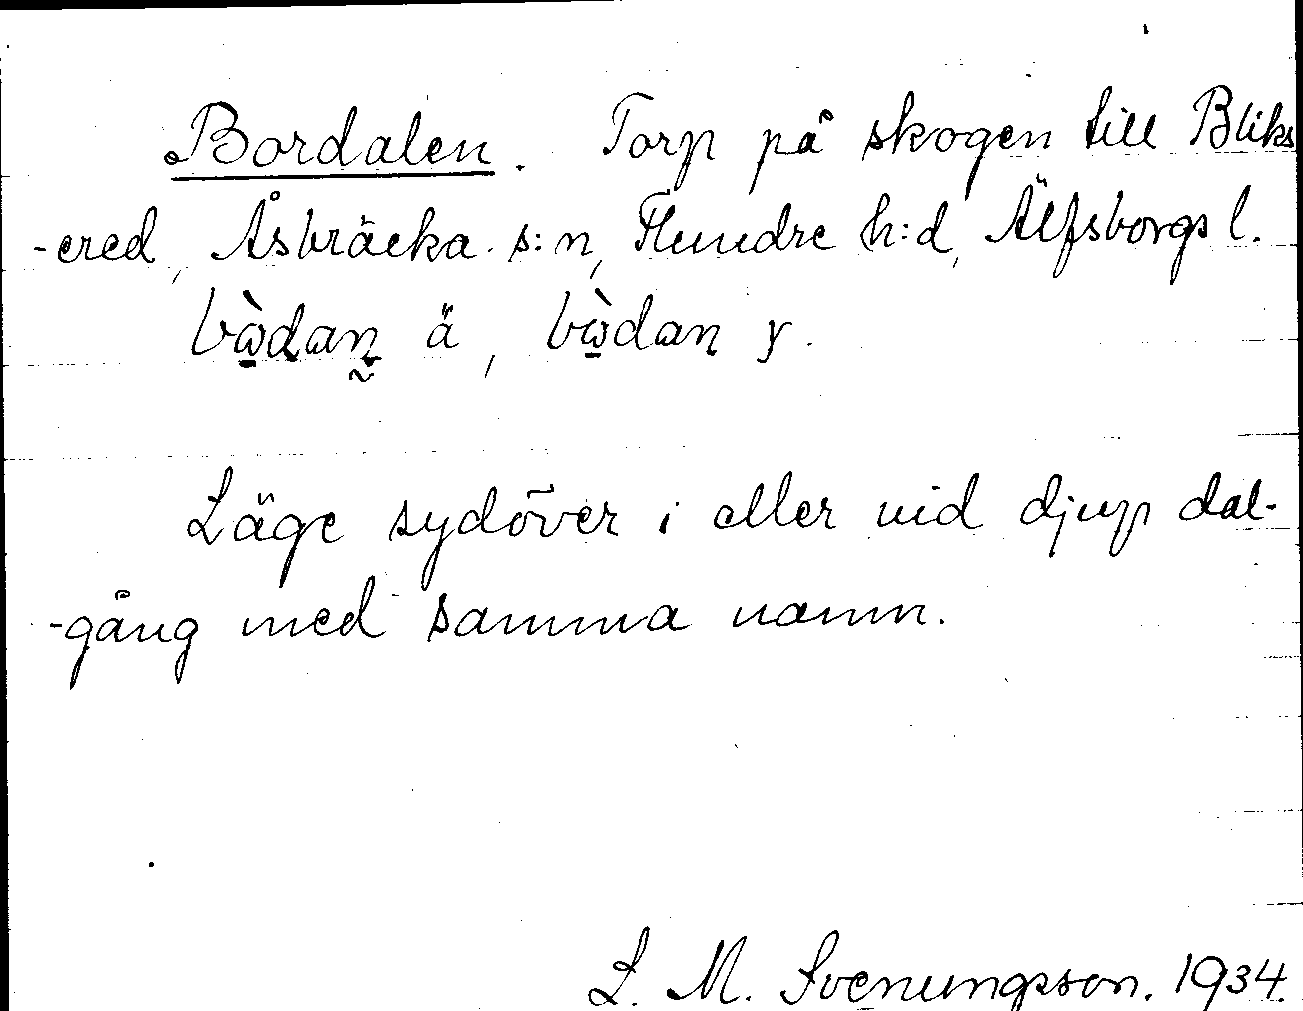 Bordalen. Torp på skogen till Bliks
-ered, Åsbräcka s:n, Flundre h:d, Älfsborgs l.
bὼ̲dan̲ ä, bὼ̲dan y.
Läge sydöver i eller vid djup dal-
-gång med samma namn.
L. M. Svenungsson. 1934.